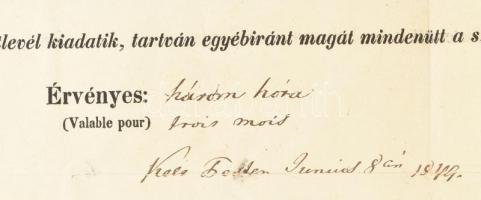 levél kiadatik, tartván egyébiránt magát mindenütt a s
Érvényes: három hóra
(Valable pour) trois mois
Pesten Junius 8án 1849.